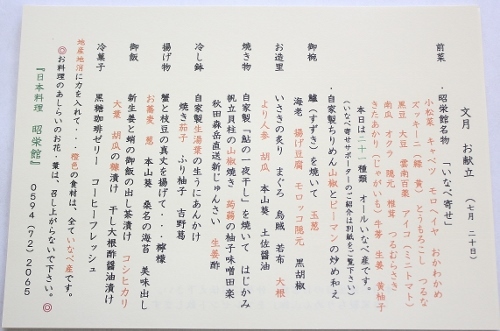 文月 お献立 (七月 二十日)
前菜 ・昭栄館名物 「いなべ寄せ」
小松菜 キャベツ モロヘイヤ おかわかめ
ズッキーニ(緑・黄) とうもろこし つるな
黒豆 大豆 雲南百薬 アイコ(ミニトマト)
南瓜 オクラ 隠元 椎茸 つるむらさき
きたあかり(じゃがいも) 牛蒡 生姜 黄柚子
本日は二十一種類 オールいなべ産です。
(いなべ寄せサポーターのご紹介は別紙をご覧下さい)
・自家製ちりめん山椒とピーマンの炒め和え
御椀 鱸(すずき)を焼いて 玉葱
海老 揚げ豆腐 モロッコ隠元 黒胡椒
お造里 いさきの炙り まぐろ 烏賊 若布 大根
より人参 胡瓜 本山葵 土佐醤油
焼き物 自家製「鮎の一夜干し」を焼いて はじかみ
帆立貝柱の山椒焼き 蒟蒻の柚子味噌田楽
秋田森岳直送新じゅんさい 生姜酢
冷し鉢 自家製生湯葉の生うにあんかけ
焼き茄子 ふり柚子 吉野葛
揚げ物 蟹と枝豆の真丈を揚げて・・・ 檸檬
お蕎麦 葱 本山葵 桑名の海苔 美味出し
御飯 新生姜と蛸の御飯の出し茶漬け コシヒカリ
大葉 胡瓜の糠漬け 干し大根酢醤油漬け
冷菓子 黒糖珈琲ゼリー コーヒーフレッシュ
地産地消に力を入れて・・・ 橙色の食材は、全ていなべ産です。
◎お料理のあしらいのお花、葉は、召し上がらないで下さい。◎
『日本料理 昭栄館』 0594(72)2065